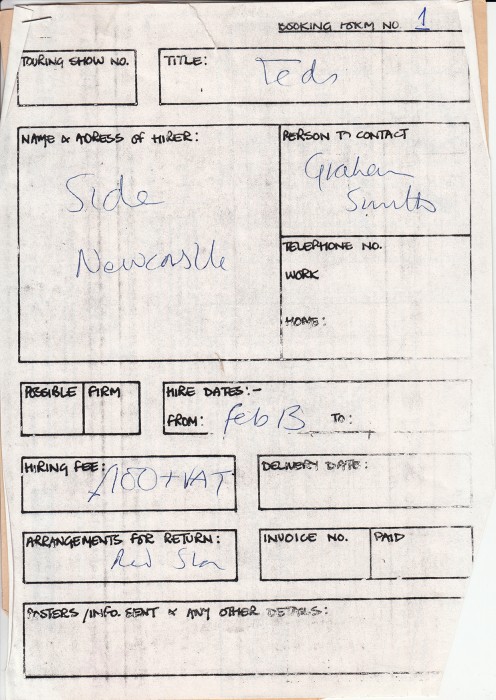 BOOKING FORM NO. 1
TOURING SHOW NO.
TITLE: Teds
NAME & ADRESS OF HIRER:
Side
Newcastle
PERSON TO CONTACT
Graham
Smith
TELEPHONE NO.
WORK
HOME:
POSSIBLE
FIRM
HIRE DATES:-
FROM: Feb 13 TO:
HIRING FEE:
£100 + VAT
DELIVERY DATE:
ARRANGEMENTS FOR RETURN:
Red Star
INVOICE NO.
PAID
POSTERS/INFO. SENT & ANY OTHER DETAILS: